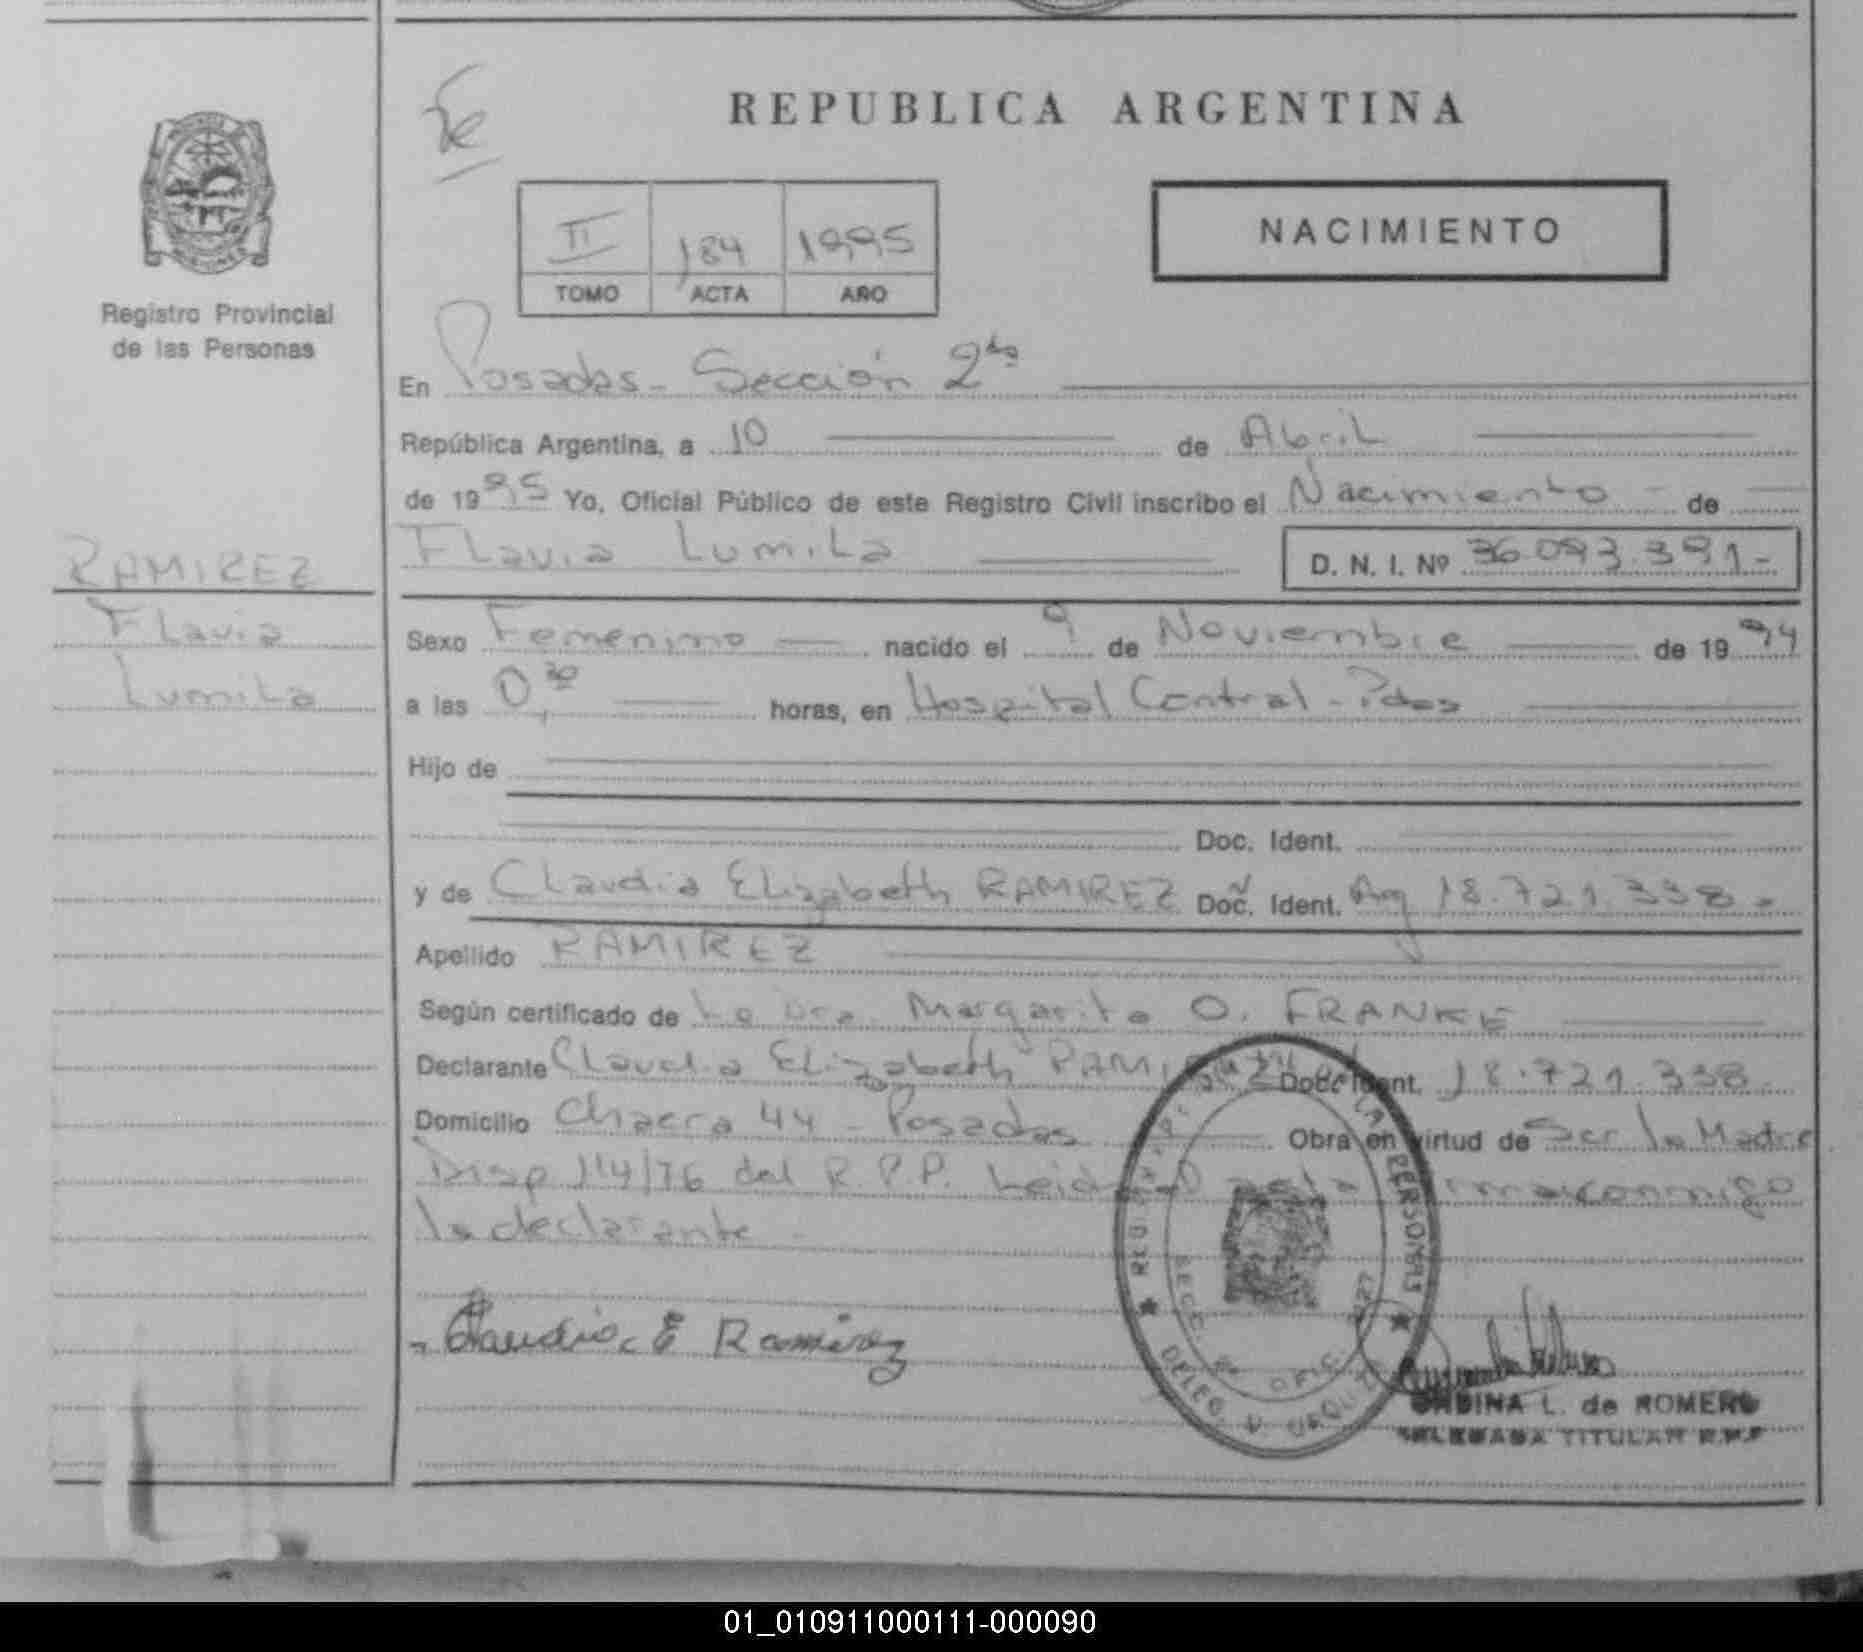 Fe
REPUBLICA ARGENTINA
NACIMIENTO
II 184 1995
TOMO ACTA AÑO
Registro Provincial
de las Personas
En Posadas - Sección 2da
República Argentina, a 10 de Abril
de 1995 Yo, Oficial Público de este Registro Civil inscribo el Nacimiento de
Flavia Lumila D. N. I. Nº 36.093.391-
RAMIREZ
Flavia
Lumila
Sexo Femenino nacido el 9 de Noviembre de 1994
a las 0,30 horas, en Hospital Central - Pdas
Hijo de
Doc. Ident.
y de Claudia Elizabeth RAMIREZ Doc. Ident. Arg 18.721.338.-
Apellido RAMIREZ
Según certificado de La Dra. Margarita O. FRANKE
Declarante Claudia Elizabeth Doc. Ident. 18.721.338.
Domicilio Chacra 44 - Posadas Obra en virtud de Ser la Madre
Disp 114/76 del R.P.P. Leida conmigo
la declarante -
Claudia E Ramirez
PERSONAS
DELEG.
L. de ROMERO
TITULAR
01_010911000111-000090